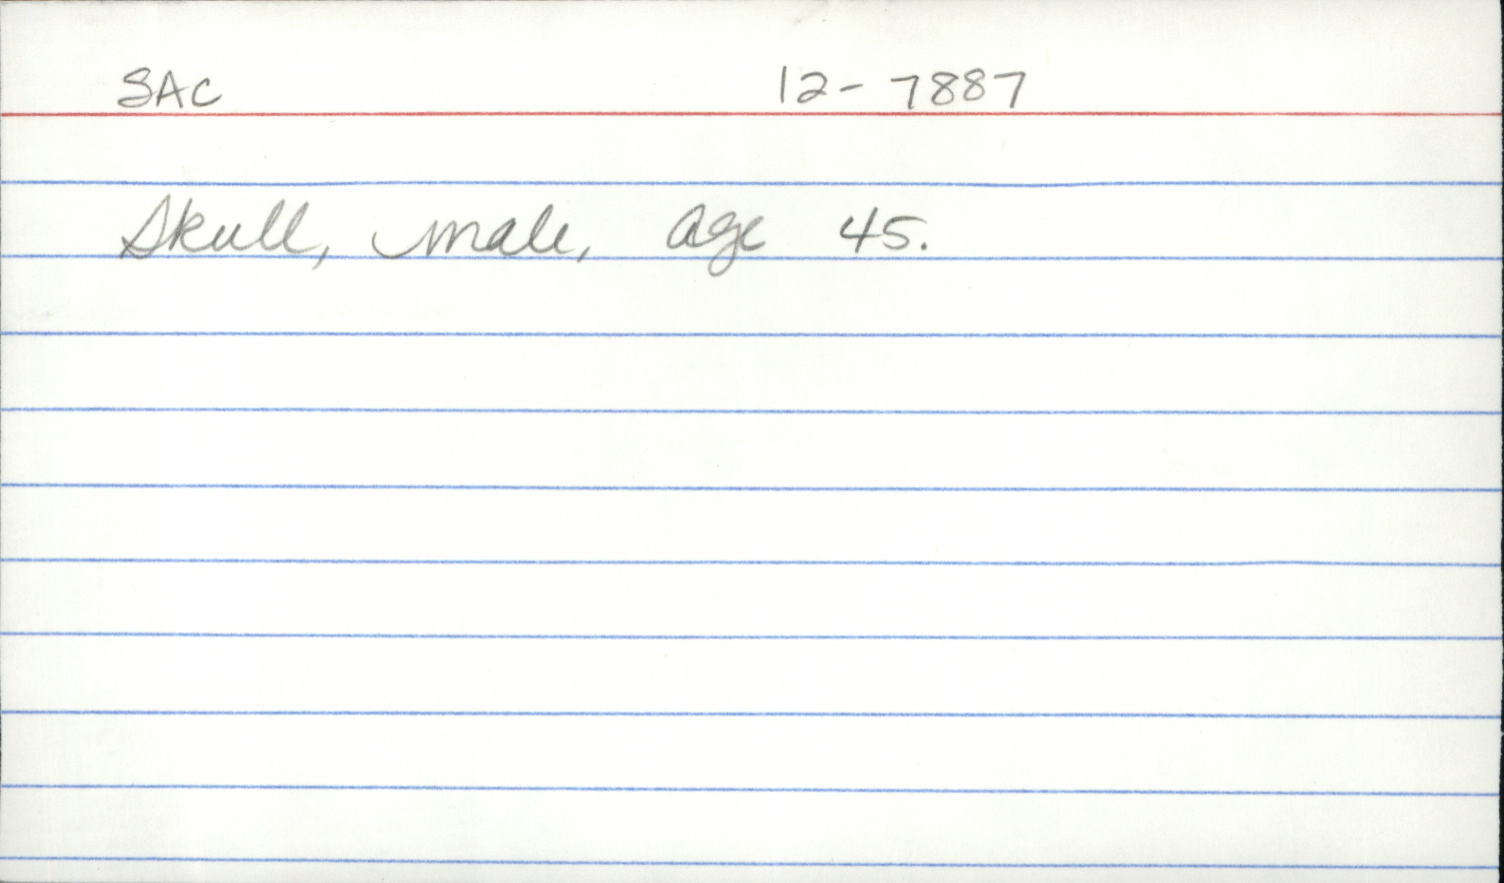 SAC 12-7887
Skull, male, age 45.